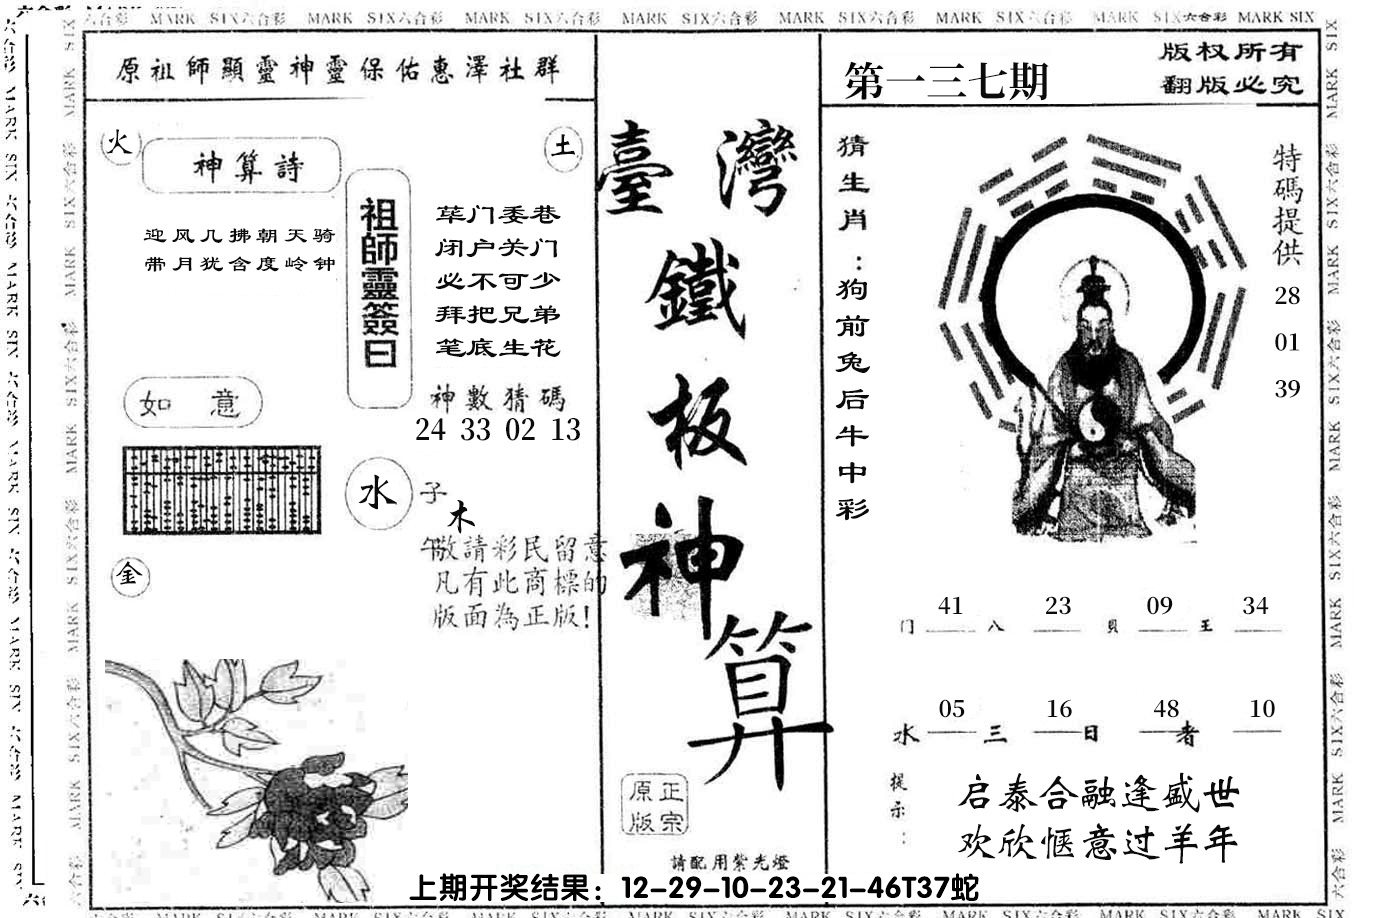 MARK SIX六合彩 MARK SIX六合彩 MARK SIX六合彩 MARK SIX六合彩 MARK SIX六合彩 MARK SIX六合彩 MARK SIX六合彩 MARK SIX
原祖師顯靈神靈保佑惠澤社群
火
神算詩
土
迎风几拂朝天骑
带月犹含度岭钟
祖師靈簽曰
荜门委巷
闭户关门
必不可少
拜把兄弟
笔底生花
神數猜碼
24 33 02 13
如 意
水
子
木
午
金
敬請彩民留意
凡有此商標的
版面為正版!
臺灣
鐵
板
神
算
正宗
原版
請配用紫光燈
第一三七期
版权所有
翻版必究
猜生肖:狗前兔后牛中彩
特碼提供
28
01
39
41 23 09 34
门 八 貝 王
05 16 48 10
水 三 日 者
提示:
启泰合融逢盛世
欢欣惬意过羊年
上期开奖结果：12-29-10-23-21-46T37蛇